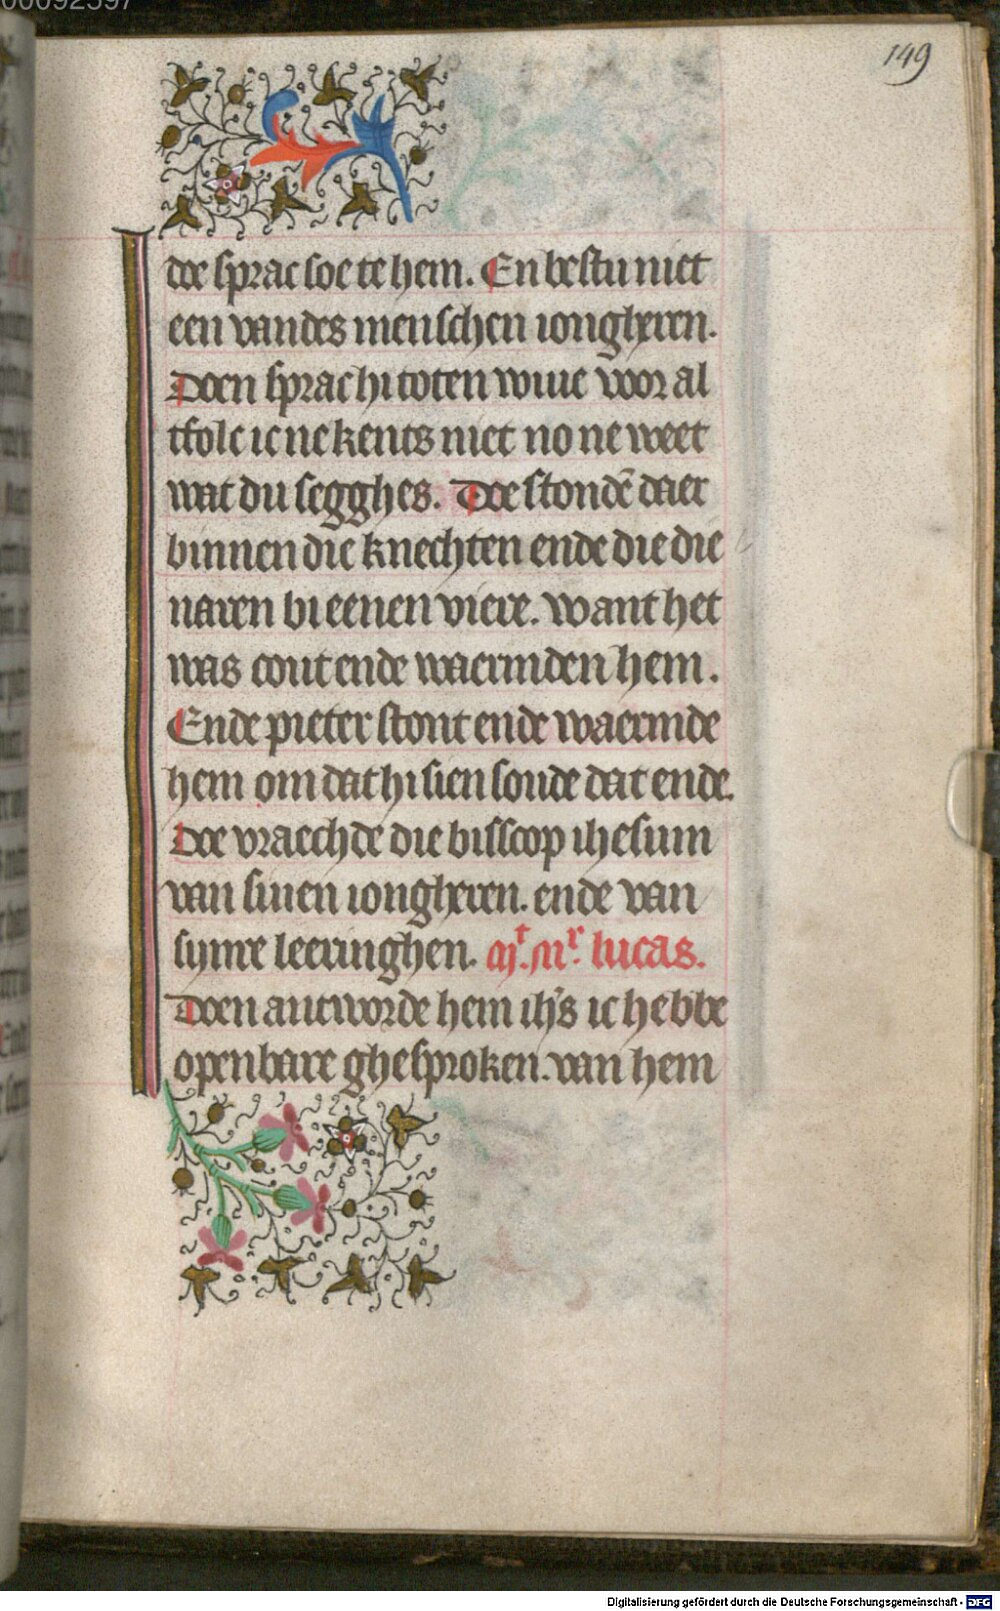 149
doe sprac soe te hem. En bestu niet
een van des menschen iongheren.
Doen sprac hi toten wiue voor al
tfolc ic ne kents niet no ne weet
wat du segghes. Doe stondē daer
binnen die knechten ende die die
naren bi eenen viere. want het
was cout ende waermden hem.
Ende pieter stont ende waermde
hem om dat hi sien soude dat ende.
Doe vraechde die bisscop ihesum
van sinen iongheren. ende van
synre leeringhen. lucas.
Doen antworde hem ihs ic hebbe
openbare ghesproken. van hem
Digitalisierung gefördert durch die Deutsche Forschungsgemeinschaft - DFG